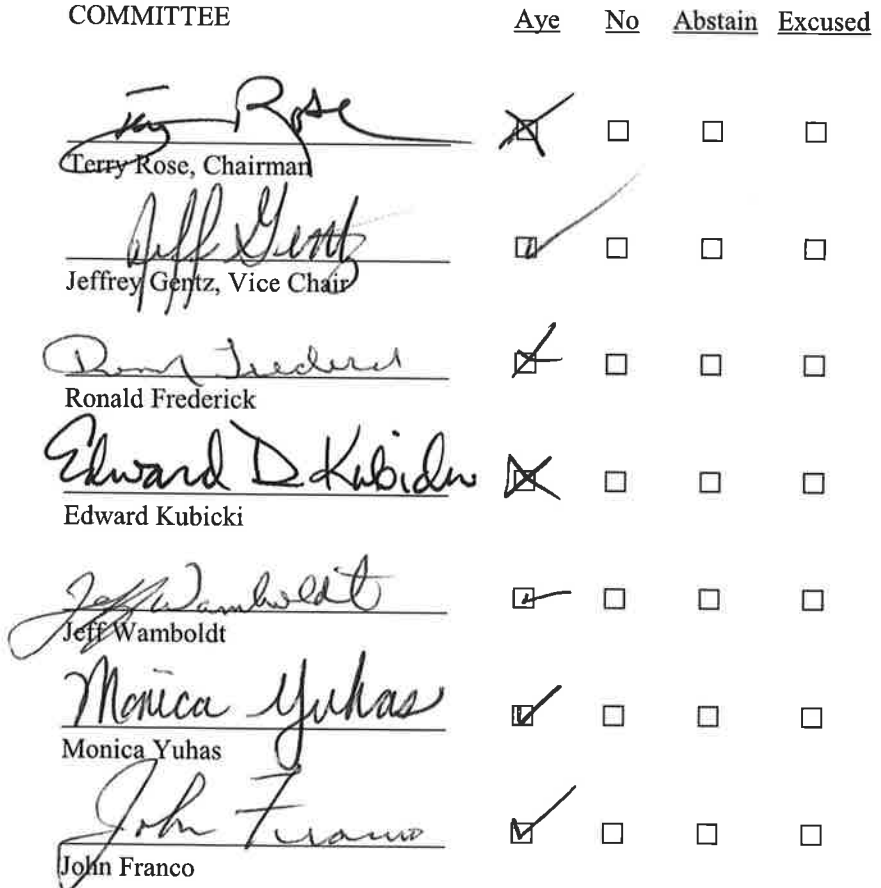 COMMITTEE Aye No Abstain Excused
Terry Rose
Terry Rose, Chairman
Jeff Gentz
Jeffrey Gentz, Vice Chair
Ronald Frederick
Edward D Kubicki
Edward Kubicki
Jeff Wamboldt
Jeff Wamboldt
Monica Yuhas
Monica Yuhas
John Franco
John Franco